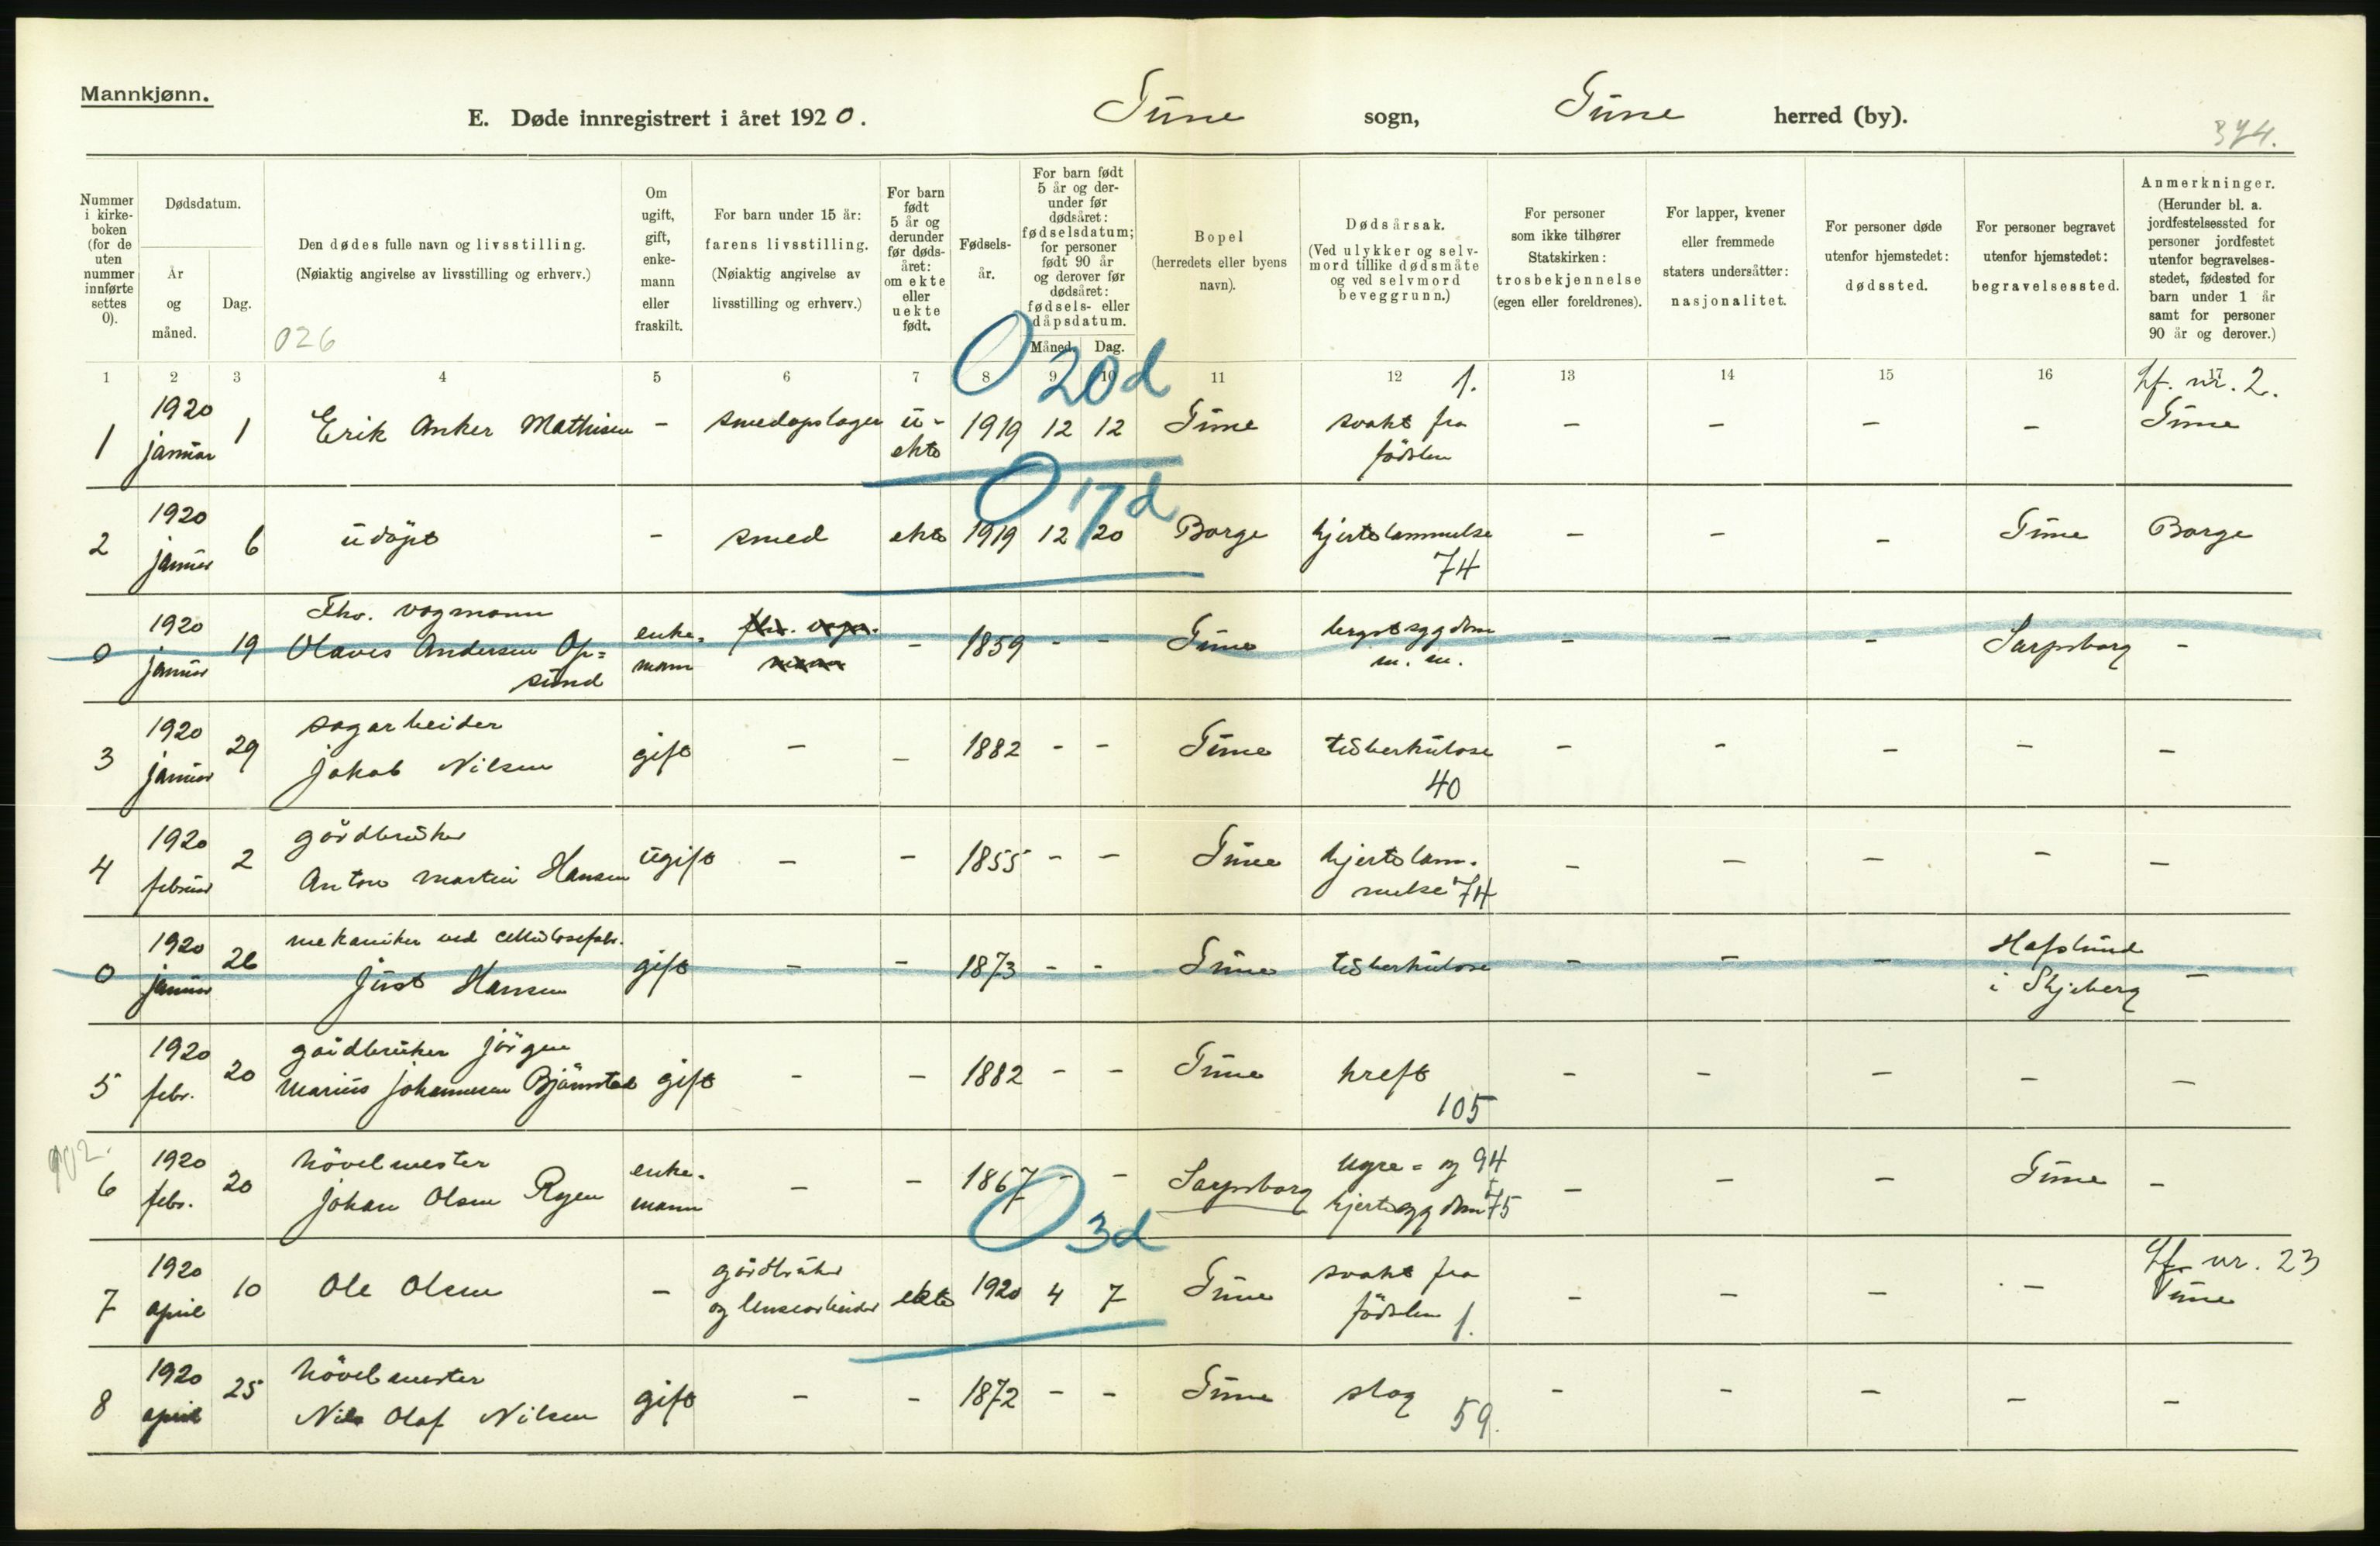 Mannkjønn.
E. Døde innregistrert i året 1920. Tune sogn, Tune herred (by).
374.
Nummer i kirke- boken (for de uten nummer innførte settes 0).
Dødsdatum.
År og måned.
Dag.
Den dødes fulle navn og livsstilling.
(Nøiaktig angivelse av livsstilling og erhverv.)
026
Om ugift, gift, enke- mann eller fraskilt.
For barn under 15 år: farens livsstilling. (Nøiaktig angivelse av livsstilling og erhverv.)
For barn født 5 år og derunder før døds- året: om ekte eller uekte født.
Fødsels- år.
For barn født 5 år og der- under før dødsåret: fødselsdatum; for personer født 90 år og derover før dødsåret: fødsels- eller dåpsdatum.
Måned. Dag.
Bopel (herredets eller byens navn).
Dødsårsak. (Ved ulykker og selv- mord tillike dødsmåte og ved selvmord beveggrunn.)
For personer som ikke tilhører Statskirken: trosbekjennelse (egen eller foreldrenes).
For lapper, kvener eller fremmede staters undersåtter: nasjonalitet.
For personer døde utenfor hjemstedet: dødssted.
For personer begravet utenfor hjemstedet: begravelsessted.
Anmerkninger. (Herunder bl. a. jordfestelsessted for personer jordfestet utenfor begravelses- stedet, fødested for barn under 1 år samt for personer 90 år og derover.)
1 2 3 4 5 6 7 8 9 10 11 12 13 14 15 16 17
0 20d
1 1920 januar 1 Erik Anker Mathisen - u- ekte 1919 12 12 Tune svakt fra födslen 1. - - - - Lf. nr. 2. Tune
0 17d
2 1920 januar 6 udöpt - smed ekte 1919 12 20 Borge hjertelammelse 74 - - - Tune Borge
0 1920 januar 19 Fhv. vogmann Olaves Andersen Op= sund enke= mann - 1859 - - Tune m. m. - - - Sarpsborg -
3 1920 januar 29 sagarbeider Jakob Nilsen gift - - 1882 - - Tune tuberkulose 40 - - - - -
4 1920 februar 2 gårdbruker Anton Martin Hansen ugift - - 1855 - - Tune hjertelam- melse 74 - - - - -
0 1920 januar 26 mekaniker ved cellulosefabr. Just Hansen gift - - 1873 - - Tune tuberkulose - - - Hafslund i Skjeberg -
5 1920 febr. 20 gårdbruker Jörgen Marius Johannesen Bjørnstad gift - - 1882 - - Tune kreft 105 - - - - -
902.
6 1920 febr. 20 hövelmester Johan Olsen Ryen enke- mann - - 1867 - - Sarpsborg nyre- og 94 hjertesygdom 75 - - - Tune -
0 3d
7 1920 april 10 Ole Olsen - gårdbruker og ekte 1920 4 7 Tune svakt fra födslen 1. - - - - Lf. nr. 23 Tune
8 1920 april 25 hövelmester Nils Olaf Nilsen gift - - 1872 - - Tune slag 59. - - - - -